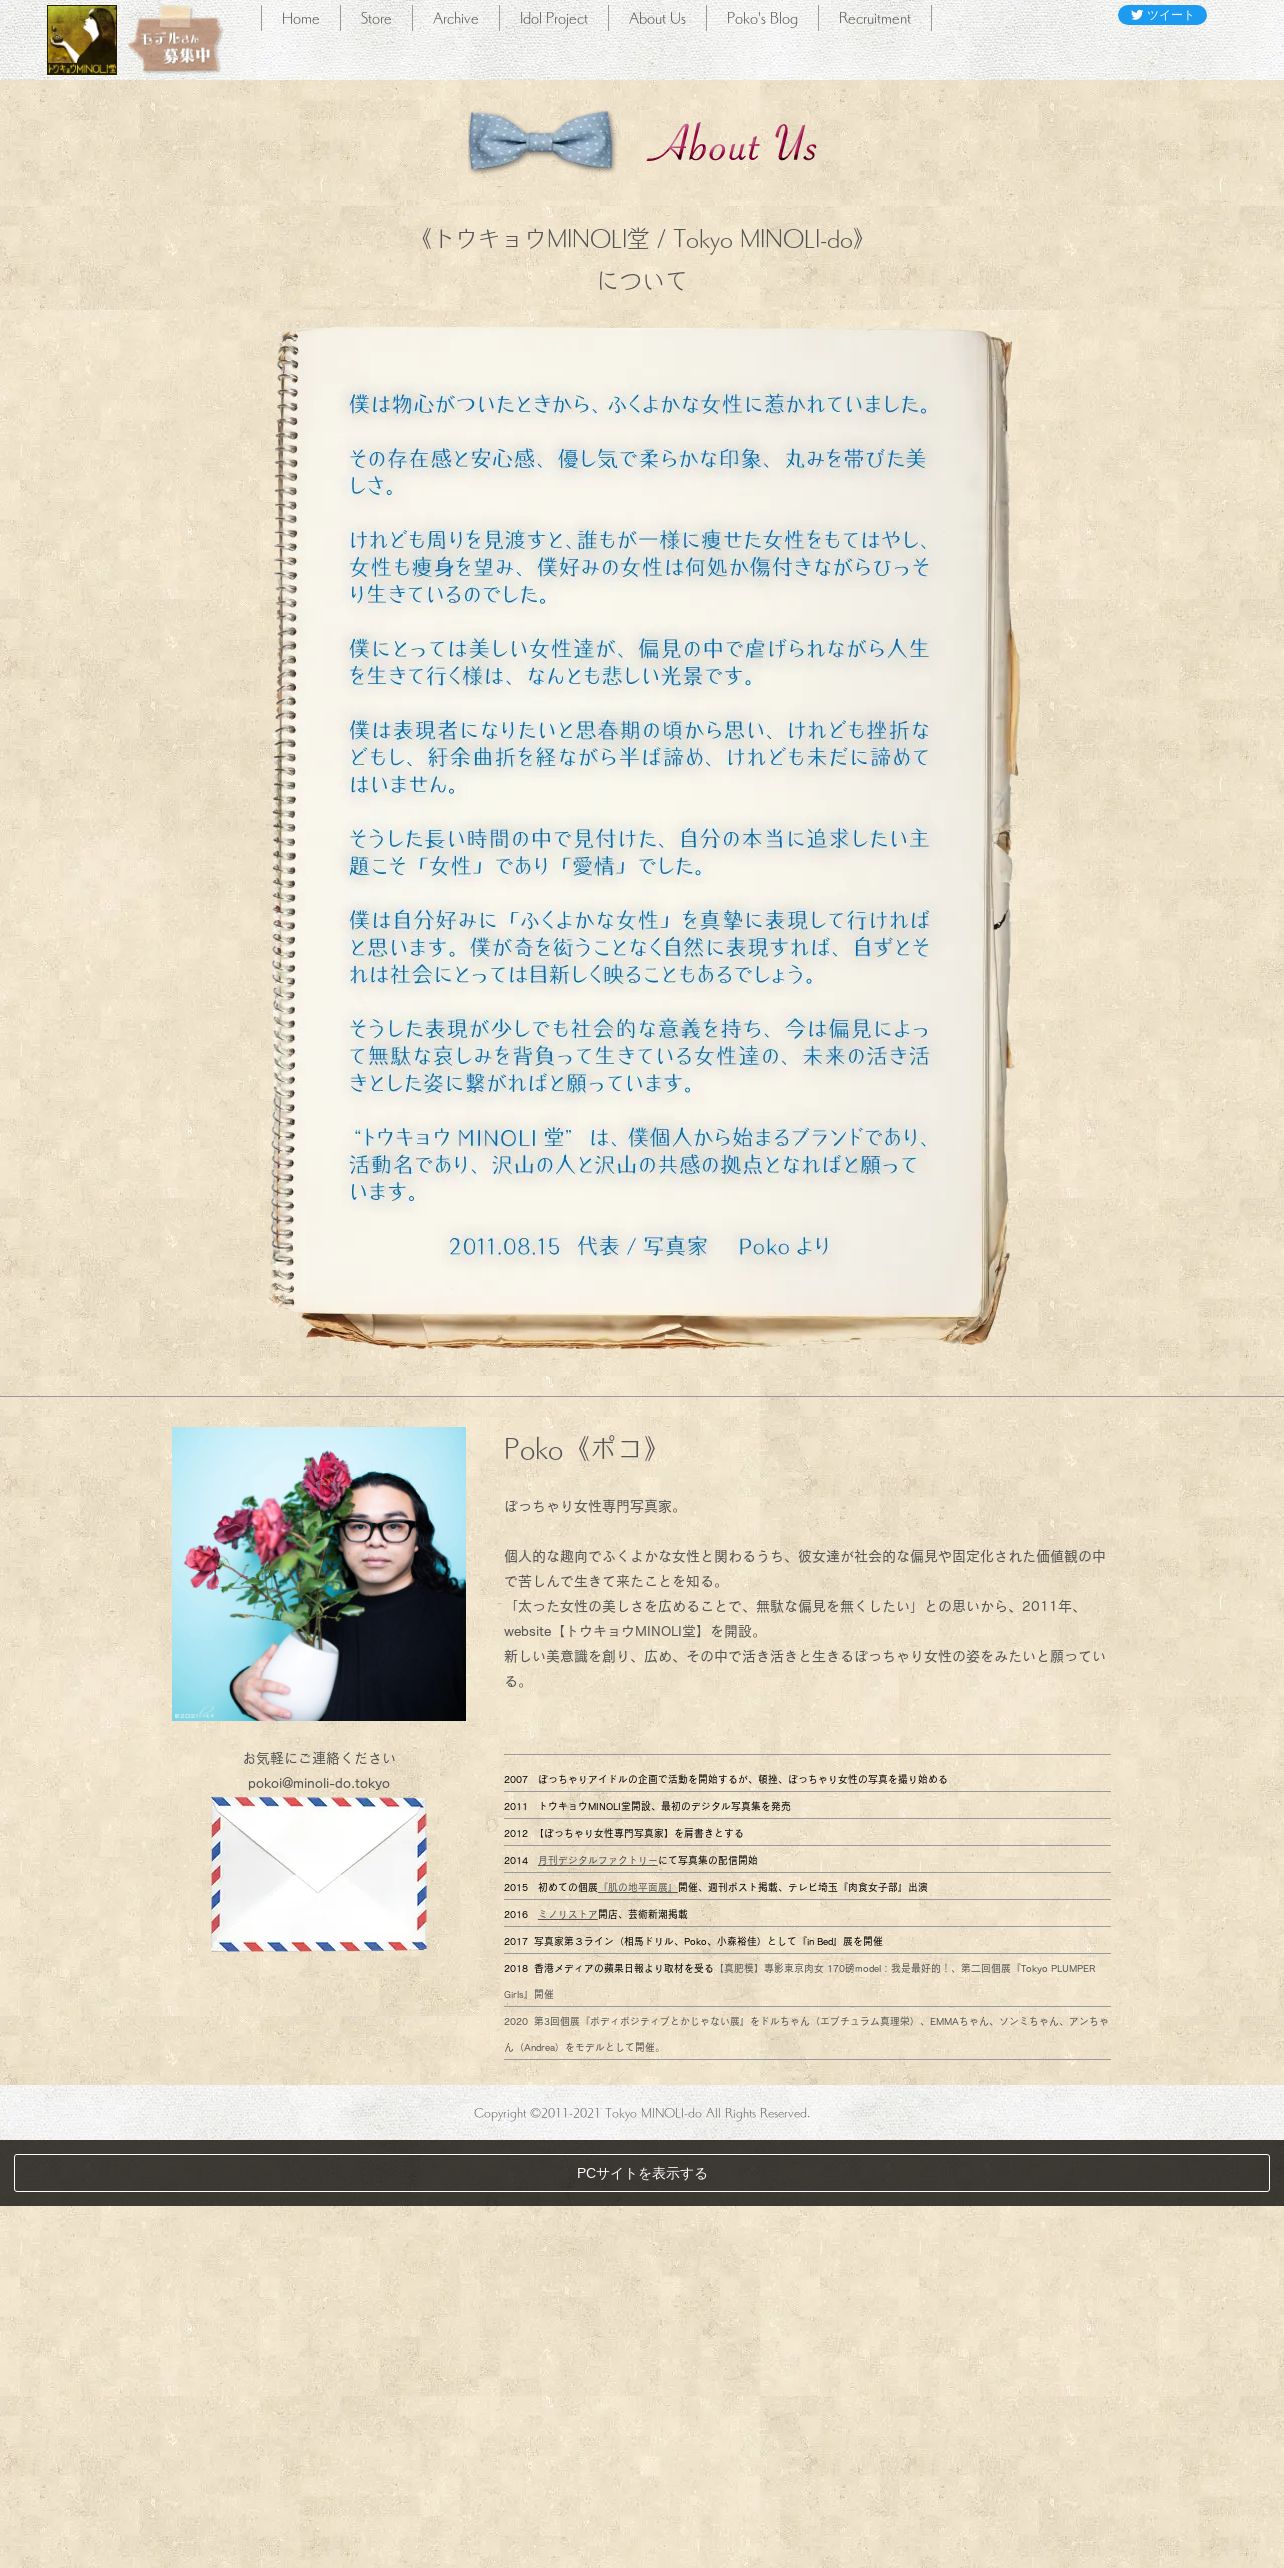 トウキョウMINOLI堂
モデルさん
募集中
Home
Store
Archive
Idol Project
About Us
Poko's Blog
Recruitment
ツイート
About Us
《トウキョウMINOLI堂 / Tokyo MINOLI-do》
について
僕は物心がついたときから、ふくよかな女性に惹かれていました。
その存在感と安心感、優し気で柔らかな印象、丸みを帯びた美
しさ。
けれども周りを見渡すと、誰もが一様に痩せた女性をもてはやし、
女性も痩身を望み、僕好みの女性は何処か傷付きながらひっそ
り生きているのでした。
僕にとっては美しい女性達が、偏見の中で虐げられながら人生
を生きて行く様は、なんとも悲しい光景です。
僕は表現者になりたいと思春期の頃から思い、けれども挫折な
どもし、紆余曲折を経ながら半ば諦め、けれども未だに諦めて
はいません。
そうした長い時間の中で見付けた、自分の本当に追求したい主
題こそ「女性」であり「愛情」でした。
僕は自分好みに「ふくよかな女性」を真摯に表現して行ければ
と思います。僕が奇を衒うことなく自然に表現すれば、自ずとそ
れは社会にとっては目新しく映ることもあるでしょう。
そうした表現が少しでも社会的な意義を持ち、今は偏見によっ
て無駄な哀しみを背負って生きている女性達の、未来の活き活
きとした姿に繋がればと願っています。
“トウキョウ MINOLI 堂” は、僕個人から始まるブランドであり、
活動名であり、沢山の人と沢山の共感の拠点となればと願って
います。
2011.08.15 代表 / 写真家 Poko より
Poko《ポコ》
ぽっちゃり女性専門写真家。
個人的な趣向でふくよかな女性と関わるうち、彼女達が社会的な偏見や固定化された価値観の中
で苦しんで生きて来たことを知る。
「太った女性の美しさを広めることで、無駄な偏見を無くしたい」との思いから、2011年、
website【トウキョウMINOLI堂】を開設。
新しい美意識を創り、広め、その中で活き活きと生きるぽっちゃり女性の姿をみたいと願ってい
る。
お気軽にご連絡ください
pokoi@minoli-do.tokyo
2007 ぽっちゃりアイドルの企画で活動を開始するが、頓挫、ぽっちゃり女性の写真を撮り始める
2011 トウキョウMINOLI堂開設、最初のデジタル写真集を発売
2012 【ぽっちゃり女性専門写真家】を肩書きとする
2014 月刊デジタルファクトリーにて写真集の配信開始
2015 初めての個展『肌の地平面展』開催、週刊ポスト掲載、テレビ埼玉『肉食女子部』出演
2016 ミノリストア開店、芸術新潮掲載
2017 写真家第３ライン（相馬ドリル、Poko、小森裕佳）として『in Bed』展を開催
2018 香港メディアの蘋果日報より取材を受る【真肥模】專影東京肉女 170磅model：我是最好的！、第二回個展『Tokyo PLUMPER
Girls』開催
2020 第3回個展『ボディポジティブとかじゃない展』をドルちゃん（エプチュラム真理栄）、EMMAちゃん、ソンミちゃん、アンちゃ
ん（Andrea）をモデルとして開催。
Copyright ©2011-2021 Tokyo MINOLI-do All Rights Reserved.
PCサイトを表示する